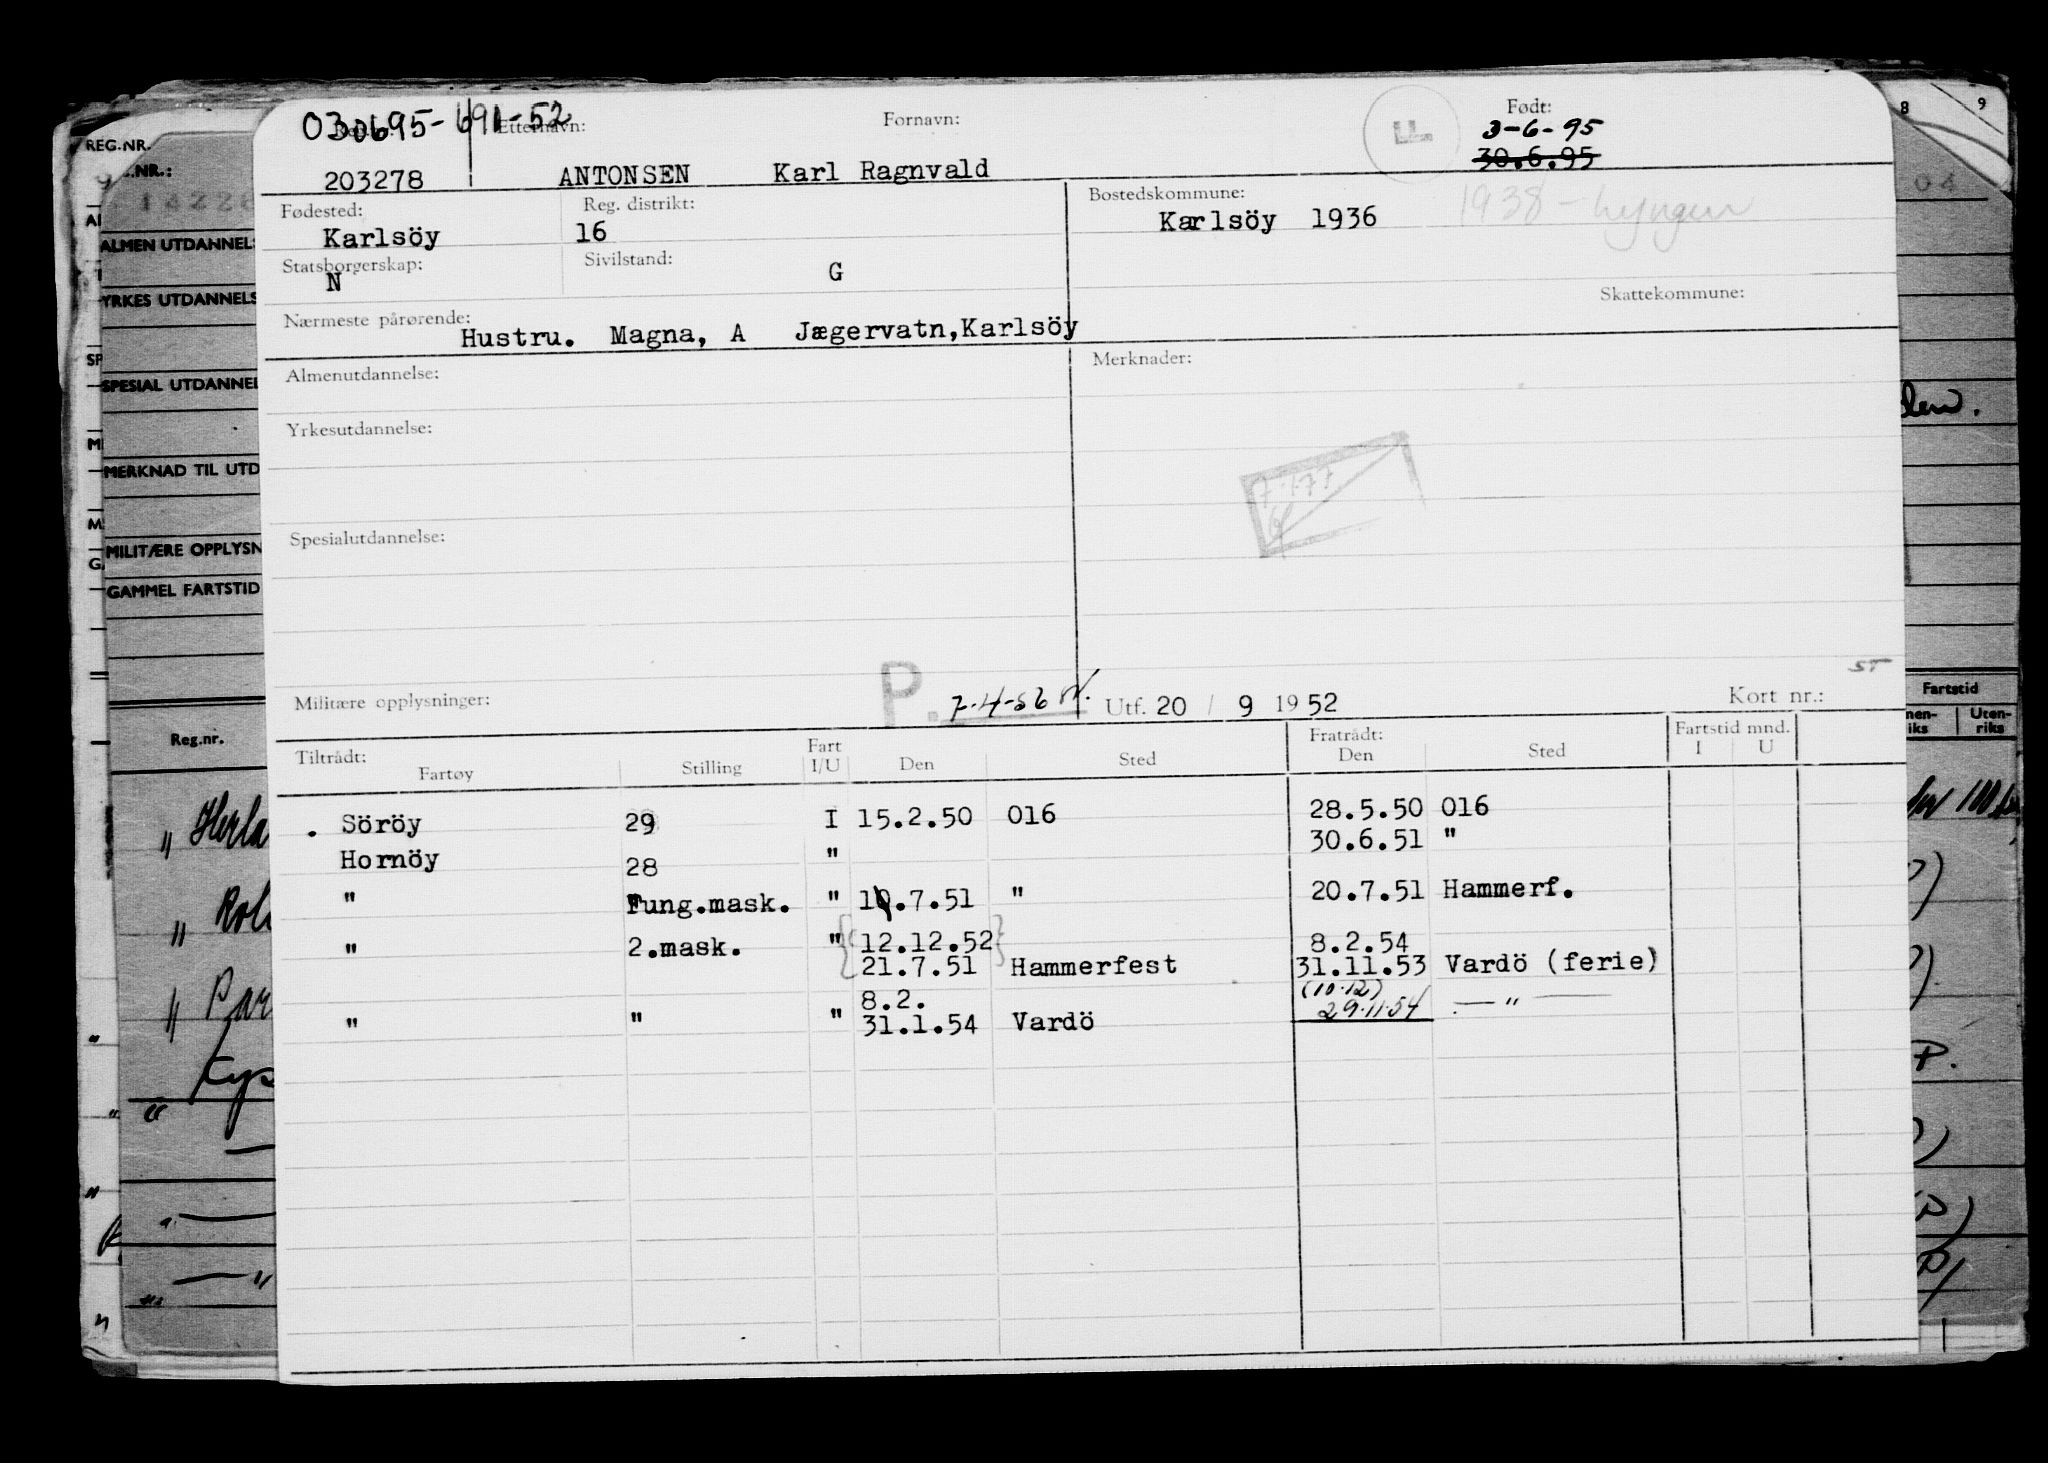 030695-691-52
Etternavn: Fornavn: Født:
3-6-95
30.6.95
203278 ANTONSEN Karl Ragnvald
F
Fødested: Reg. distrikt: Bostedskommune:
Karlsöy 16 Karlsöy 1936 1938 - Lyngen
Statsborgerskap: Sivilstand:
N G
Skattekommune:
Nærmeste pårørende:
Hustru. Magna, A Jægervatn,Karlsöy
Almenutdannelse: Merknader:
Yrkesutdannelse:
Spesialutdannelse:
ST
Militære opplysninger: P. 7-4-56 Utf. 20 / 9 1952 Kort nr.:
Tiltrådt: Fratrådt: Fartstid mnd.
Fartøy Stilling Fart I/U Den Sted Den Sted I U
. Söröy 29 I 15.2.50 016 28.5.50 016
Hornöy 28 " 30.6.51 "
" Fung.mask. " .7.51 " 20.7.51 Hammerf.
" 2.mask. " 12.12.52 8.2.54
21.7.51 Hammerfest 31.11.53 Vardö (ferie)
8.2. (10.12)
" " " 31.1.54 Vardö 29.11.54 — " —
REG.NR.
.NR.:
ALMEN UTDANNELS
YRKES UTDANNELS
SP
SPESIAL UTDANNEL
M
MERKNAD TIL UTD
M
MILITÆRE OPPLYSN
G
GAMMEL FARTSTID
Reg.nr.
8 9
04
Fartstid
nen-
iks
Uten-
riks
P.